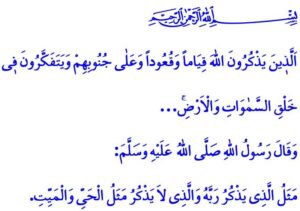 بِسْمِ اللهِ الرَّحْمٰنِ الرَّحِيمِ
اَلَّذِينَ يَذْكُرُونَ اللهَ قِيَاماً وَقُعُوداً وَعَلٰى جُنُوبِهِمْ وَيَتَفَكَّرُونَ فِي
خَلْقِ السَّمٰوَاتِ وَالْاَرْضِۚ...
وَقَالَ رَسُولُ اللهِ صَلَّى اللهُ عَلَيْهِ وَسَلَّمَ:
مَثَلُ الَّذِي يَذْكُرُ رَبَّهُ وَالَّذِي لاَ يَذْكُرُ مَثَلُ الْحَيِّ وَالْمَيِّتِ.